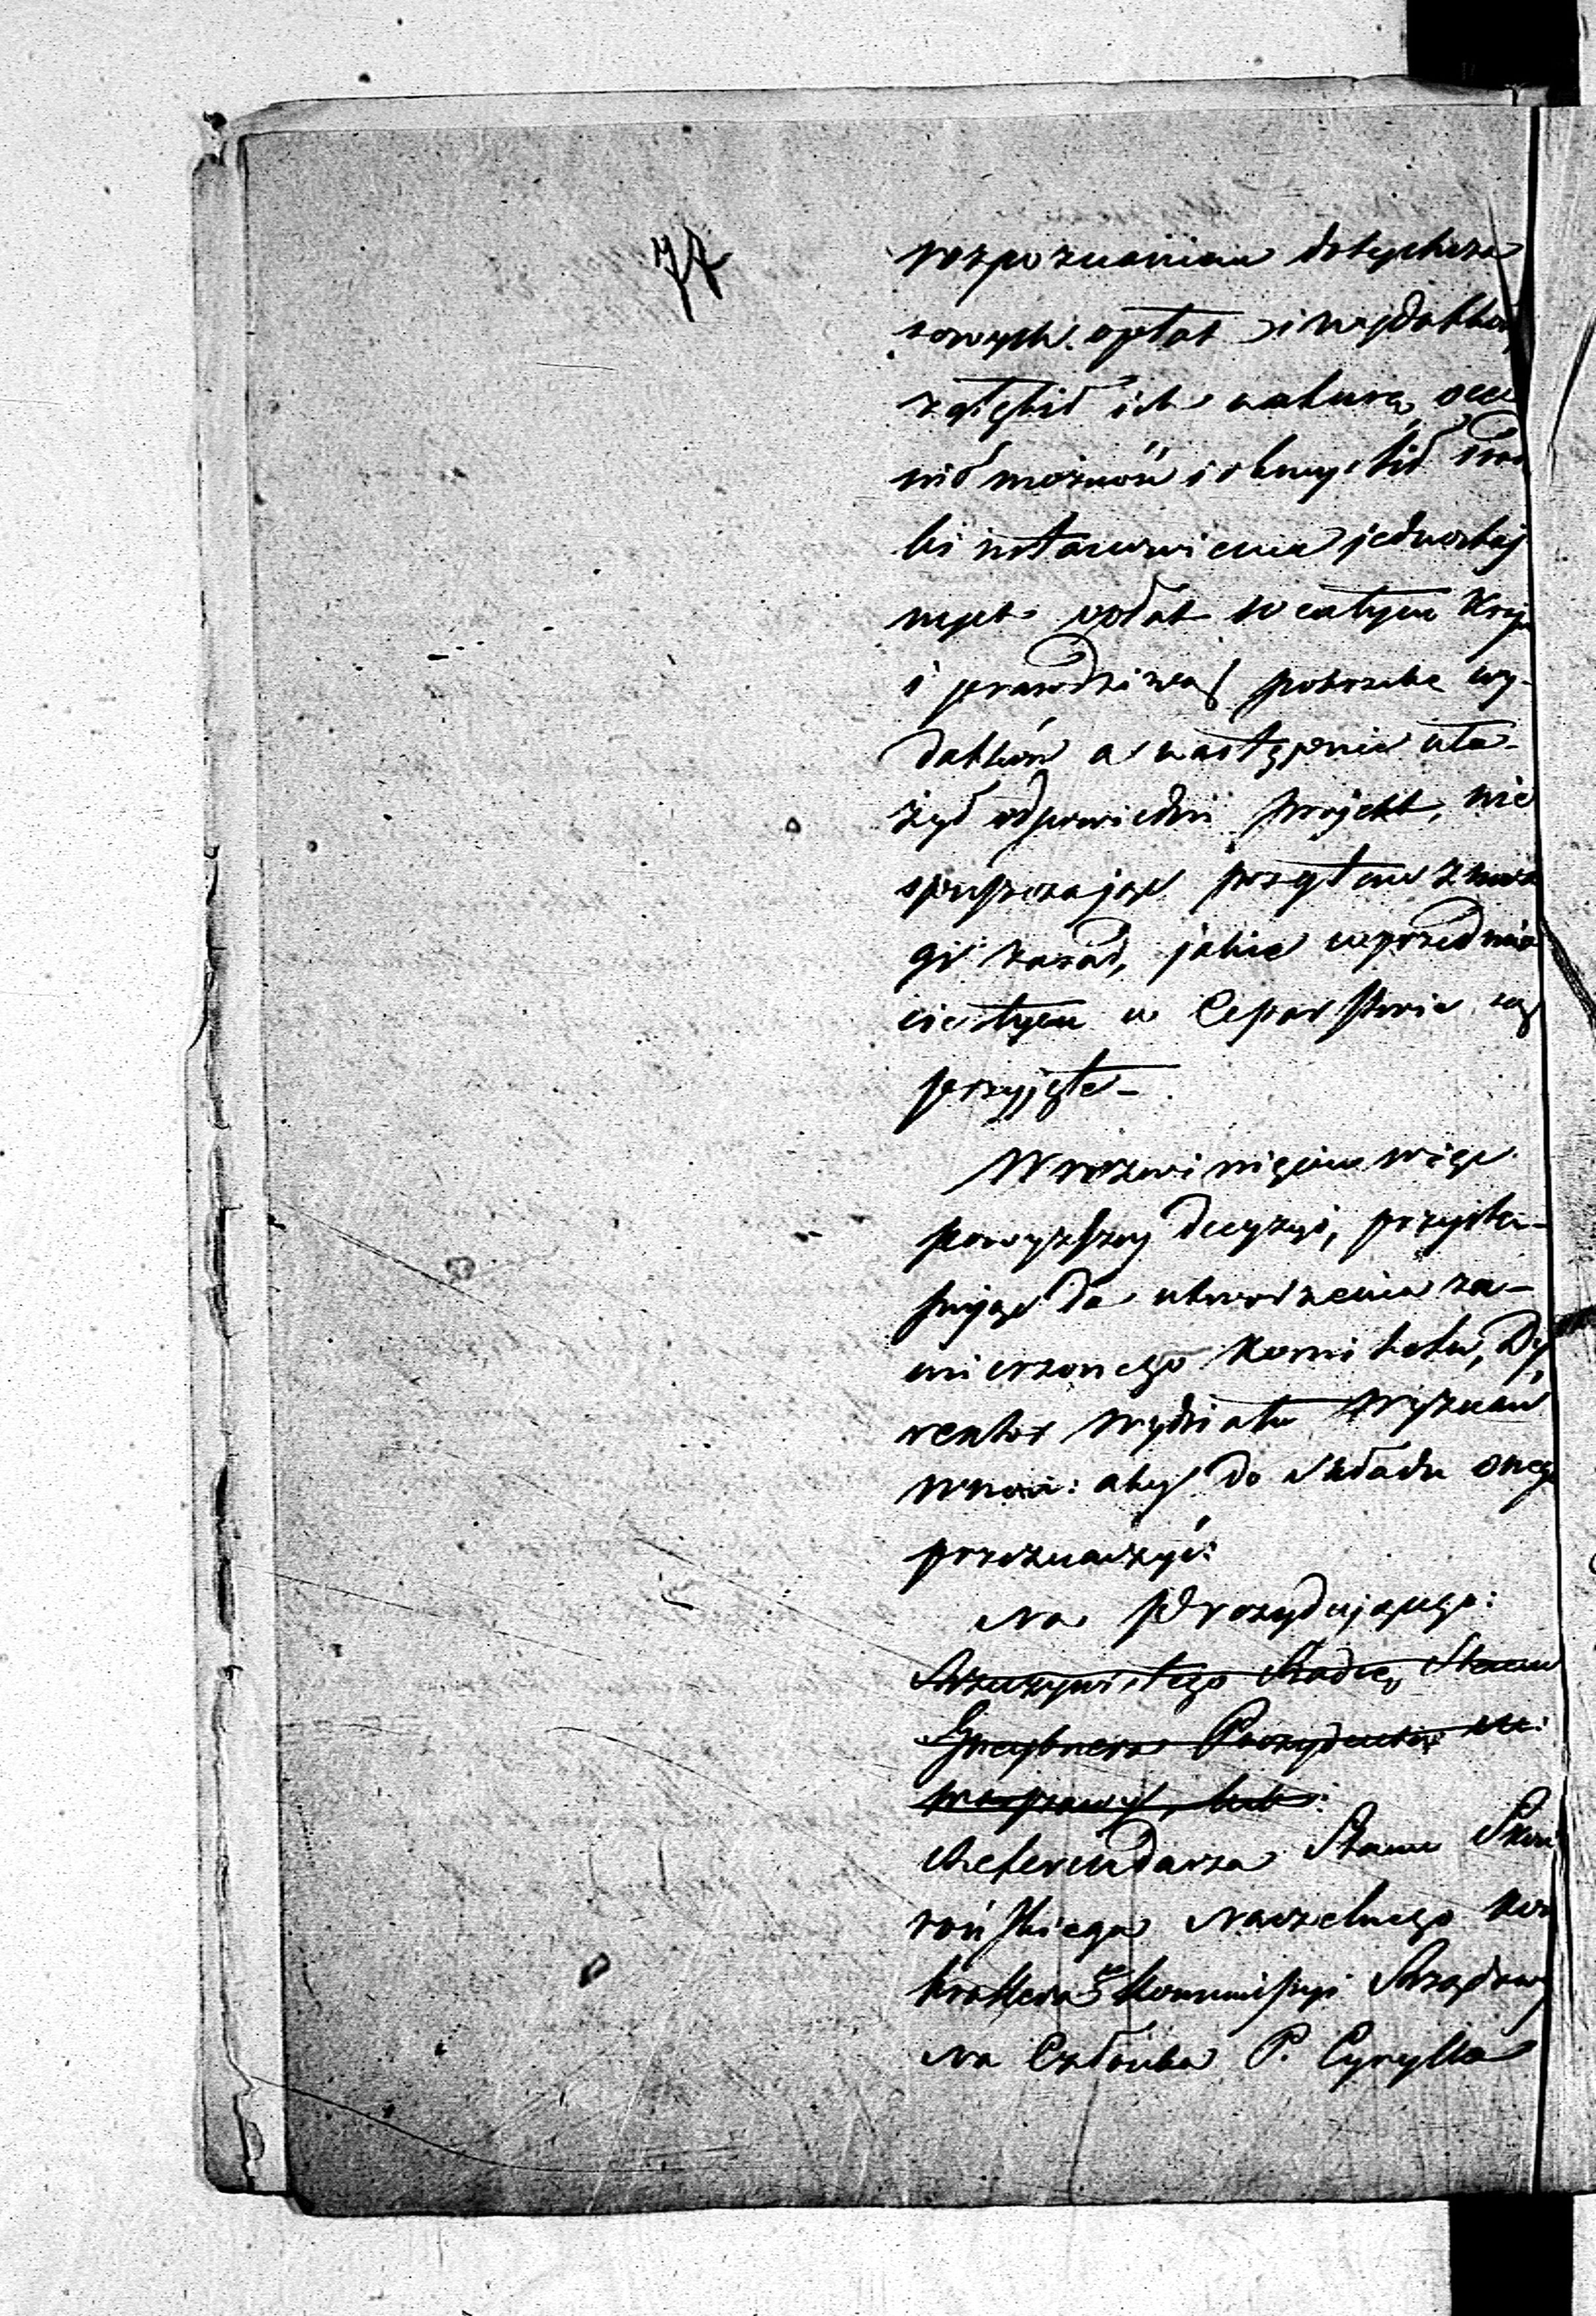 77
rozpoznaniem dotychcza
sowych opłat i wydatków
zgłębić ich naturę, oce
nić możność i obmyślić środ
ki ustanowienia jednostaj
nych opłat w całym Kraju
i prawdziwą potrzebę wy-
datków a następnie uło-
żyć odpowiedni projekt, nie
spuszczając przytem z uwa
gi zasad, jakie w przedmio
cie tym w Cesarstwie są
przyjęte-
W rozwinięciu więc
powyższej decyzyi, przystę-
pując do utworzenia za-
mierzonego Komitetu, Dy
rektor Wydziału Wyznań
wnosi: aby do składu onego
przeznaczyć:
Na Prezydującego:
Rzeczywistego Radcę Stanu
Prezydenta m:
Warszawy, lub:
Referendarza Stanu
Naczelnego Kon
trollera Kommissyi Rządowej
Na Członka P. Cyrylla